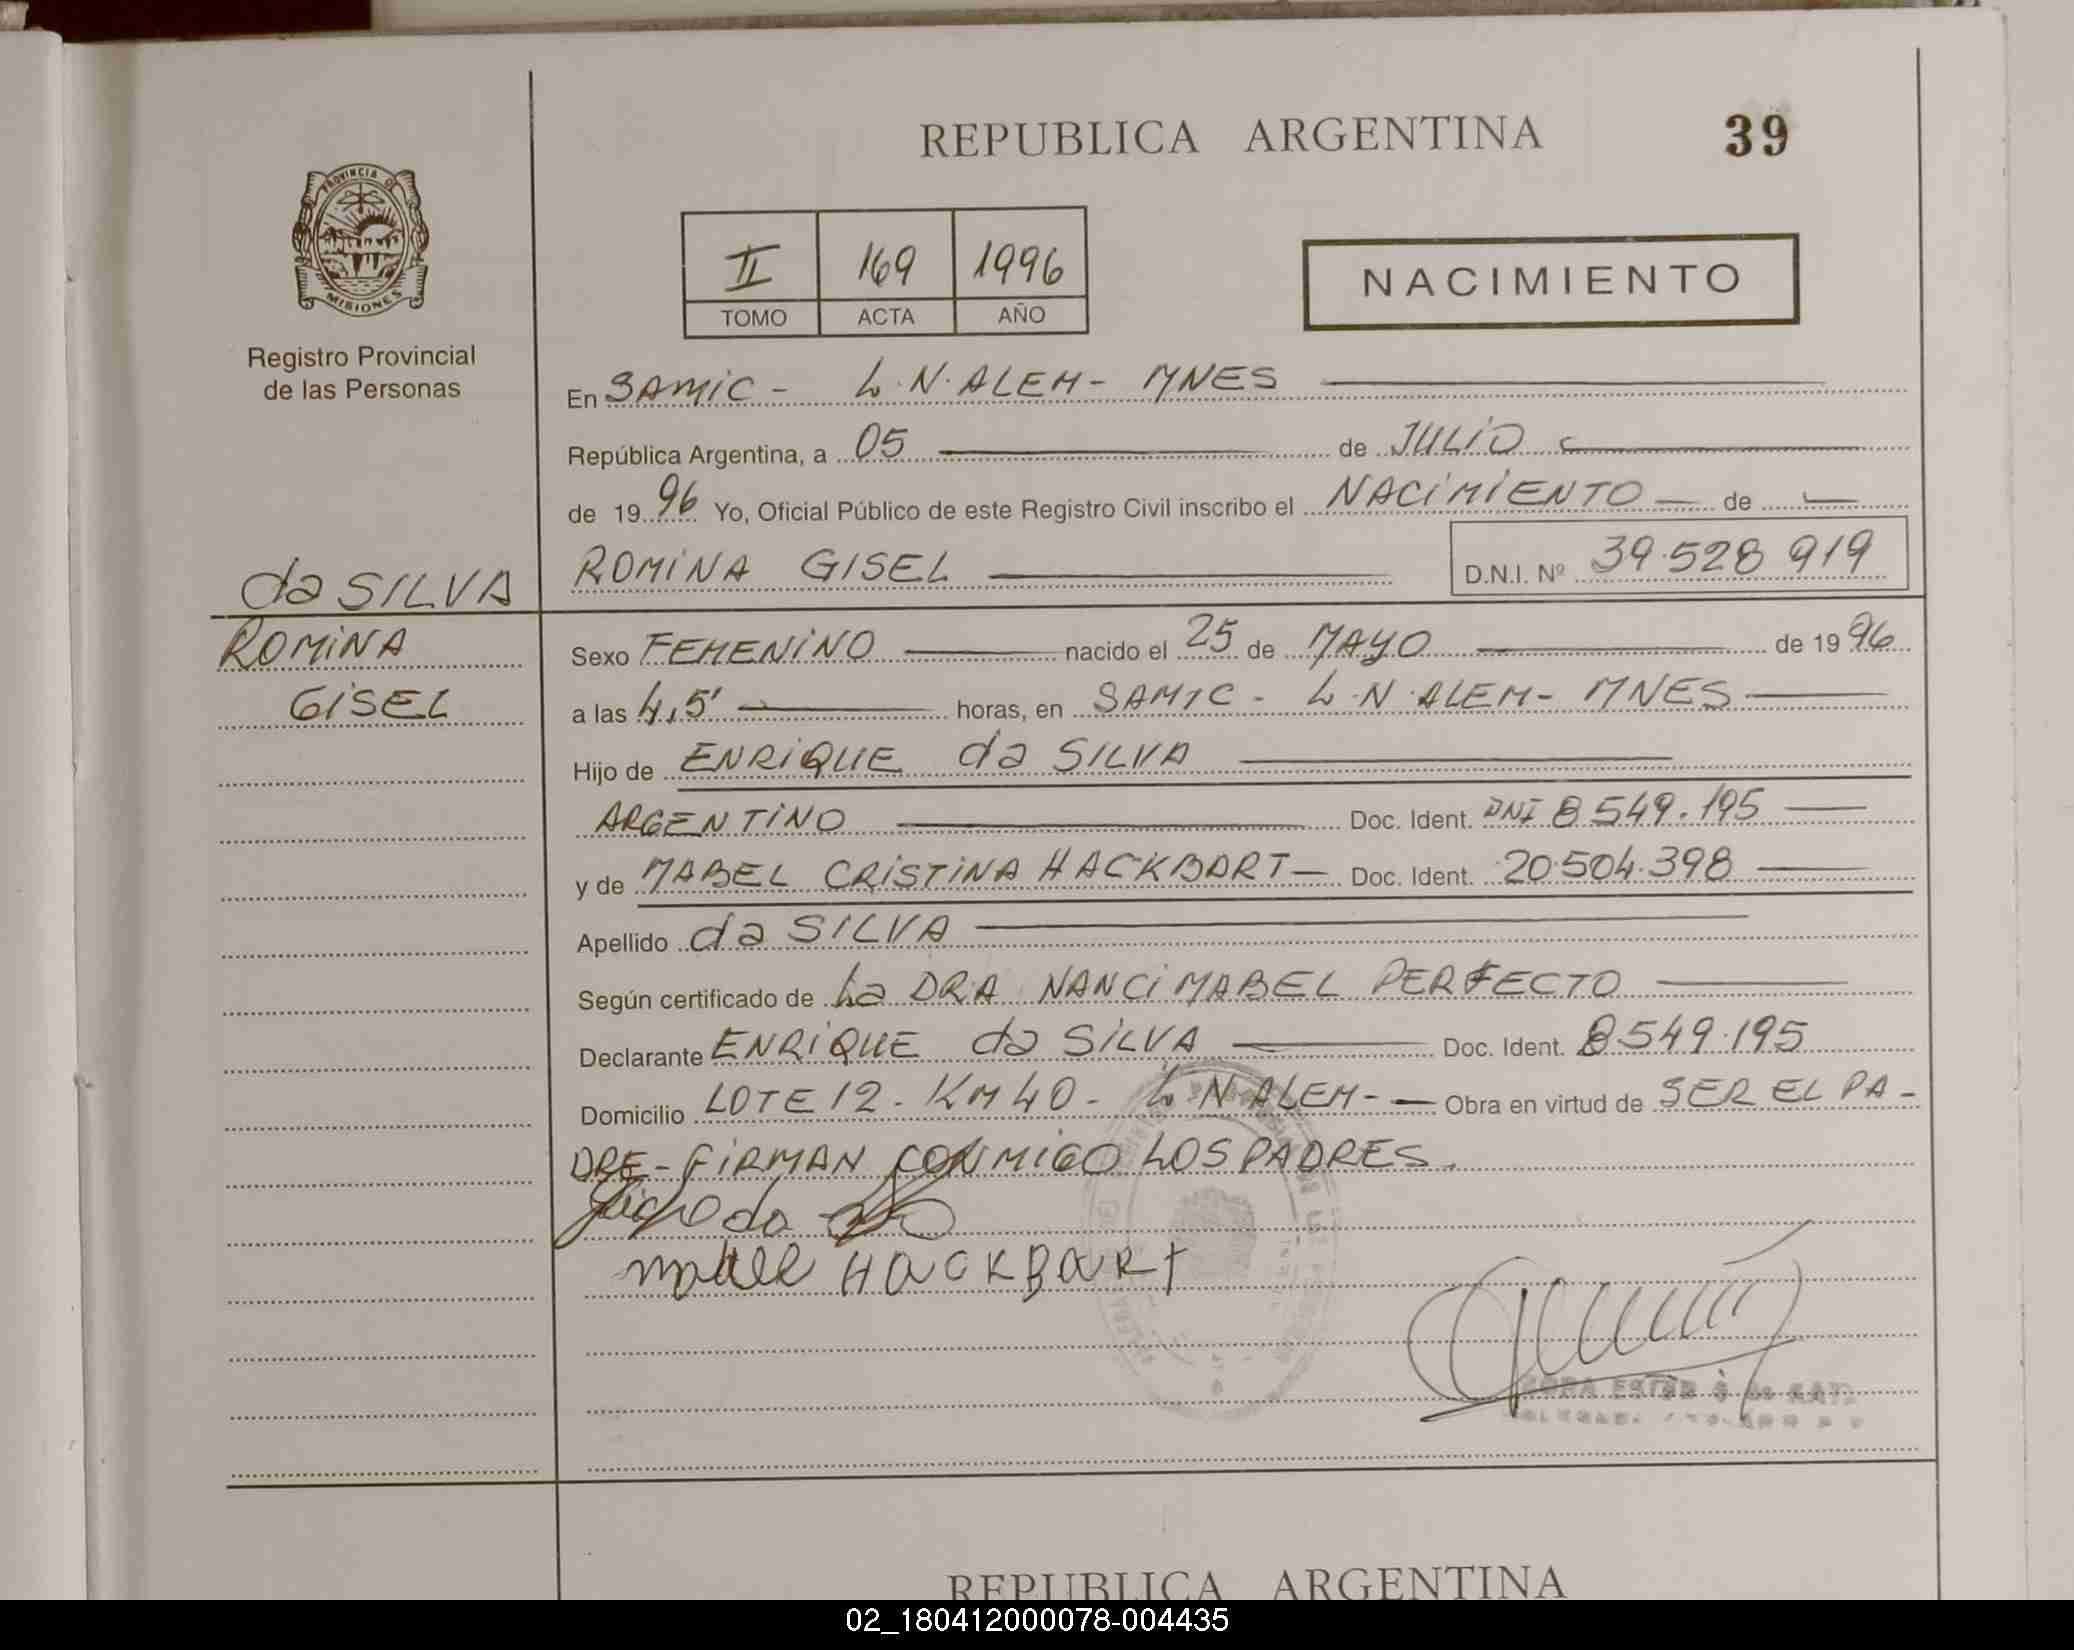 REPUBLICA ARGENTINA
39
PROVINCIA DE
MISIONES
Registro Provincial
de las Personas
II 169 1996
TOMO ACTA AÑO
NACIMIENTO
En SAMIC - L.N.ALEM- MNES
República Argentina, a 05 de JULIO
de 1996 Yo, Oficial Público de este Registro Civil inscribo el NACIMIENTO de
ROMINA GISEL
D.N.I. Nº 39.528 919
da SILVA
ROMINA
GISEL
Sexo FEMENINO nacido el 25 de MAYO de 1996
a las 4,5' horas, en SAMIC - L.N.ALEM- MNES
Hijo de ENRIQUE da SILVA
ARGENTINO Doc. Ident. DNI 8549.195
y de MABEL CRISTINA HACKBART- Doc. Ident. 20.504.398
Apellido da SILVA
Según certificado de La DRA NANCI MABEL PERFECTO
Declarante ENRIQUE da SILVA Doc. Ident. 8549.195
Domicilio LOTE 12 - KM 40 - L N ALEM- Obra en virtud de SER EL PA-
DRE - FIRMAN CONMIGO LOS PADRES.
da
HACKBART
REPUBLICA ARGENTINA
02_180412000078-004435